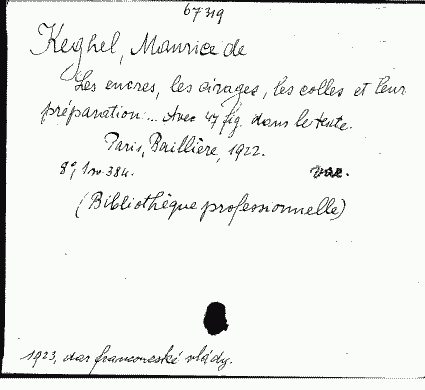 67319
Keghel, Maurice de
Les encres, les cirages, les colles et leur
préparation ... Avec 47 fig. dans le texte.
Paris, Baillière, 1922.
8°, 384. váz.
(Bibliothèque professionnelle)
1923, dar francouzské vlády.